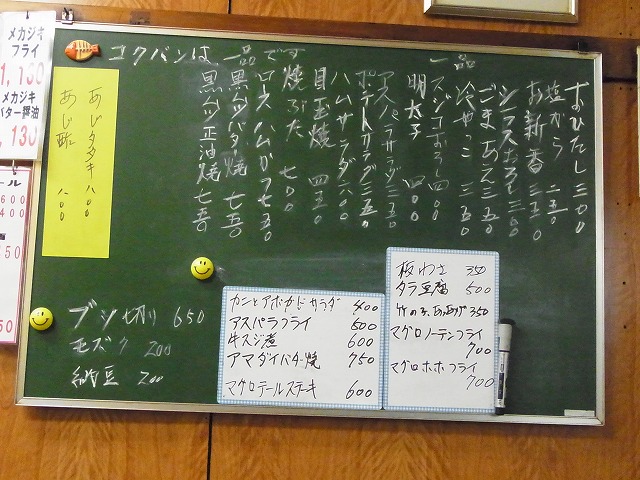 コクバンは一品です
おひたし 三五〇
塩から 二五〇
お新香 三五〇
シラスおろし 三五〇
ごまあえ 三五〇
冷やっこ 三五〇
一品
スジコおろし 四〇〇
明太子 四〇〇
アスパラサラダ 三五〇
ポテトサラダ 三五〇
ハムサラダ 六〇〇
目玉焼 四五〇
焼ぶた 七〇〇
ロースハムカツ 七五〇
黒ムツバター焼 七五〇
黒ムツ正油焼 七五〇
あじタタキ 八〇〇
あじ酢 八〇〇
ブツ切り 650
モズク 200
納豆 200
カニとアボカドサラダ 400
アスパラフライ 600
牛スジ煮 600
アマダイバター焼 750
マグロテールステーキ 600
板わさ 350
タラ豆腐 500
竹の子、あぶあげ 350
マグロノーテンフライ 700
マグロホホフライ 700
メカジキ
フライ
1,130
メカジキ
バター醤油
,130
ール
600
400
50
50